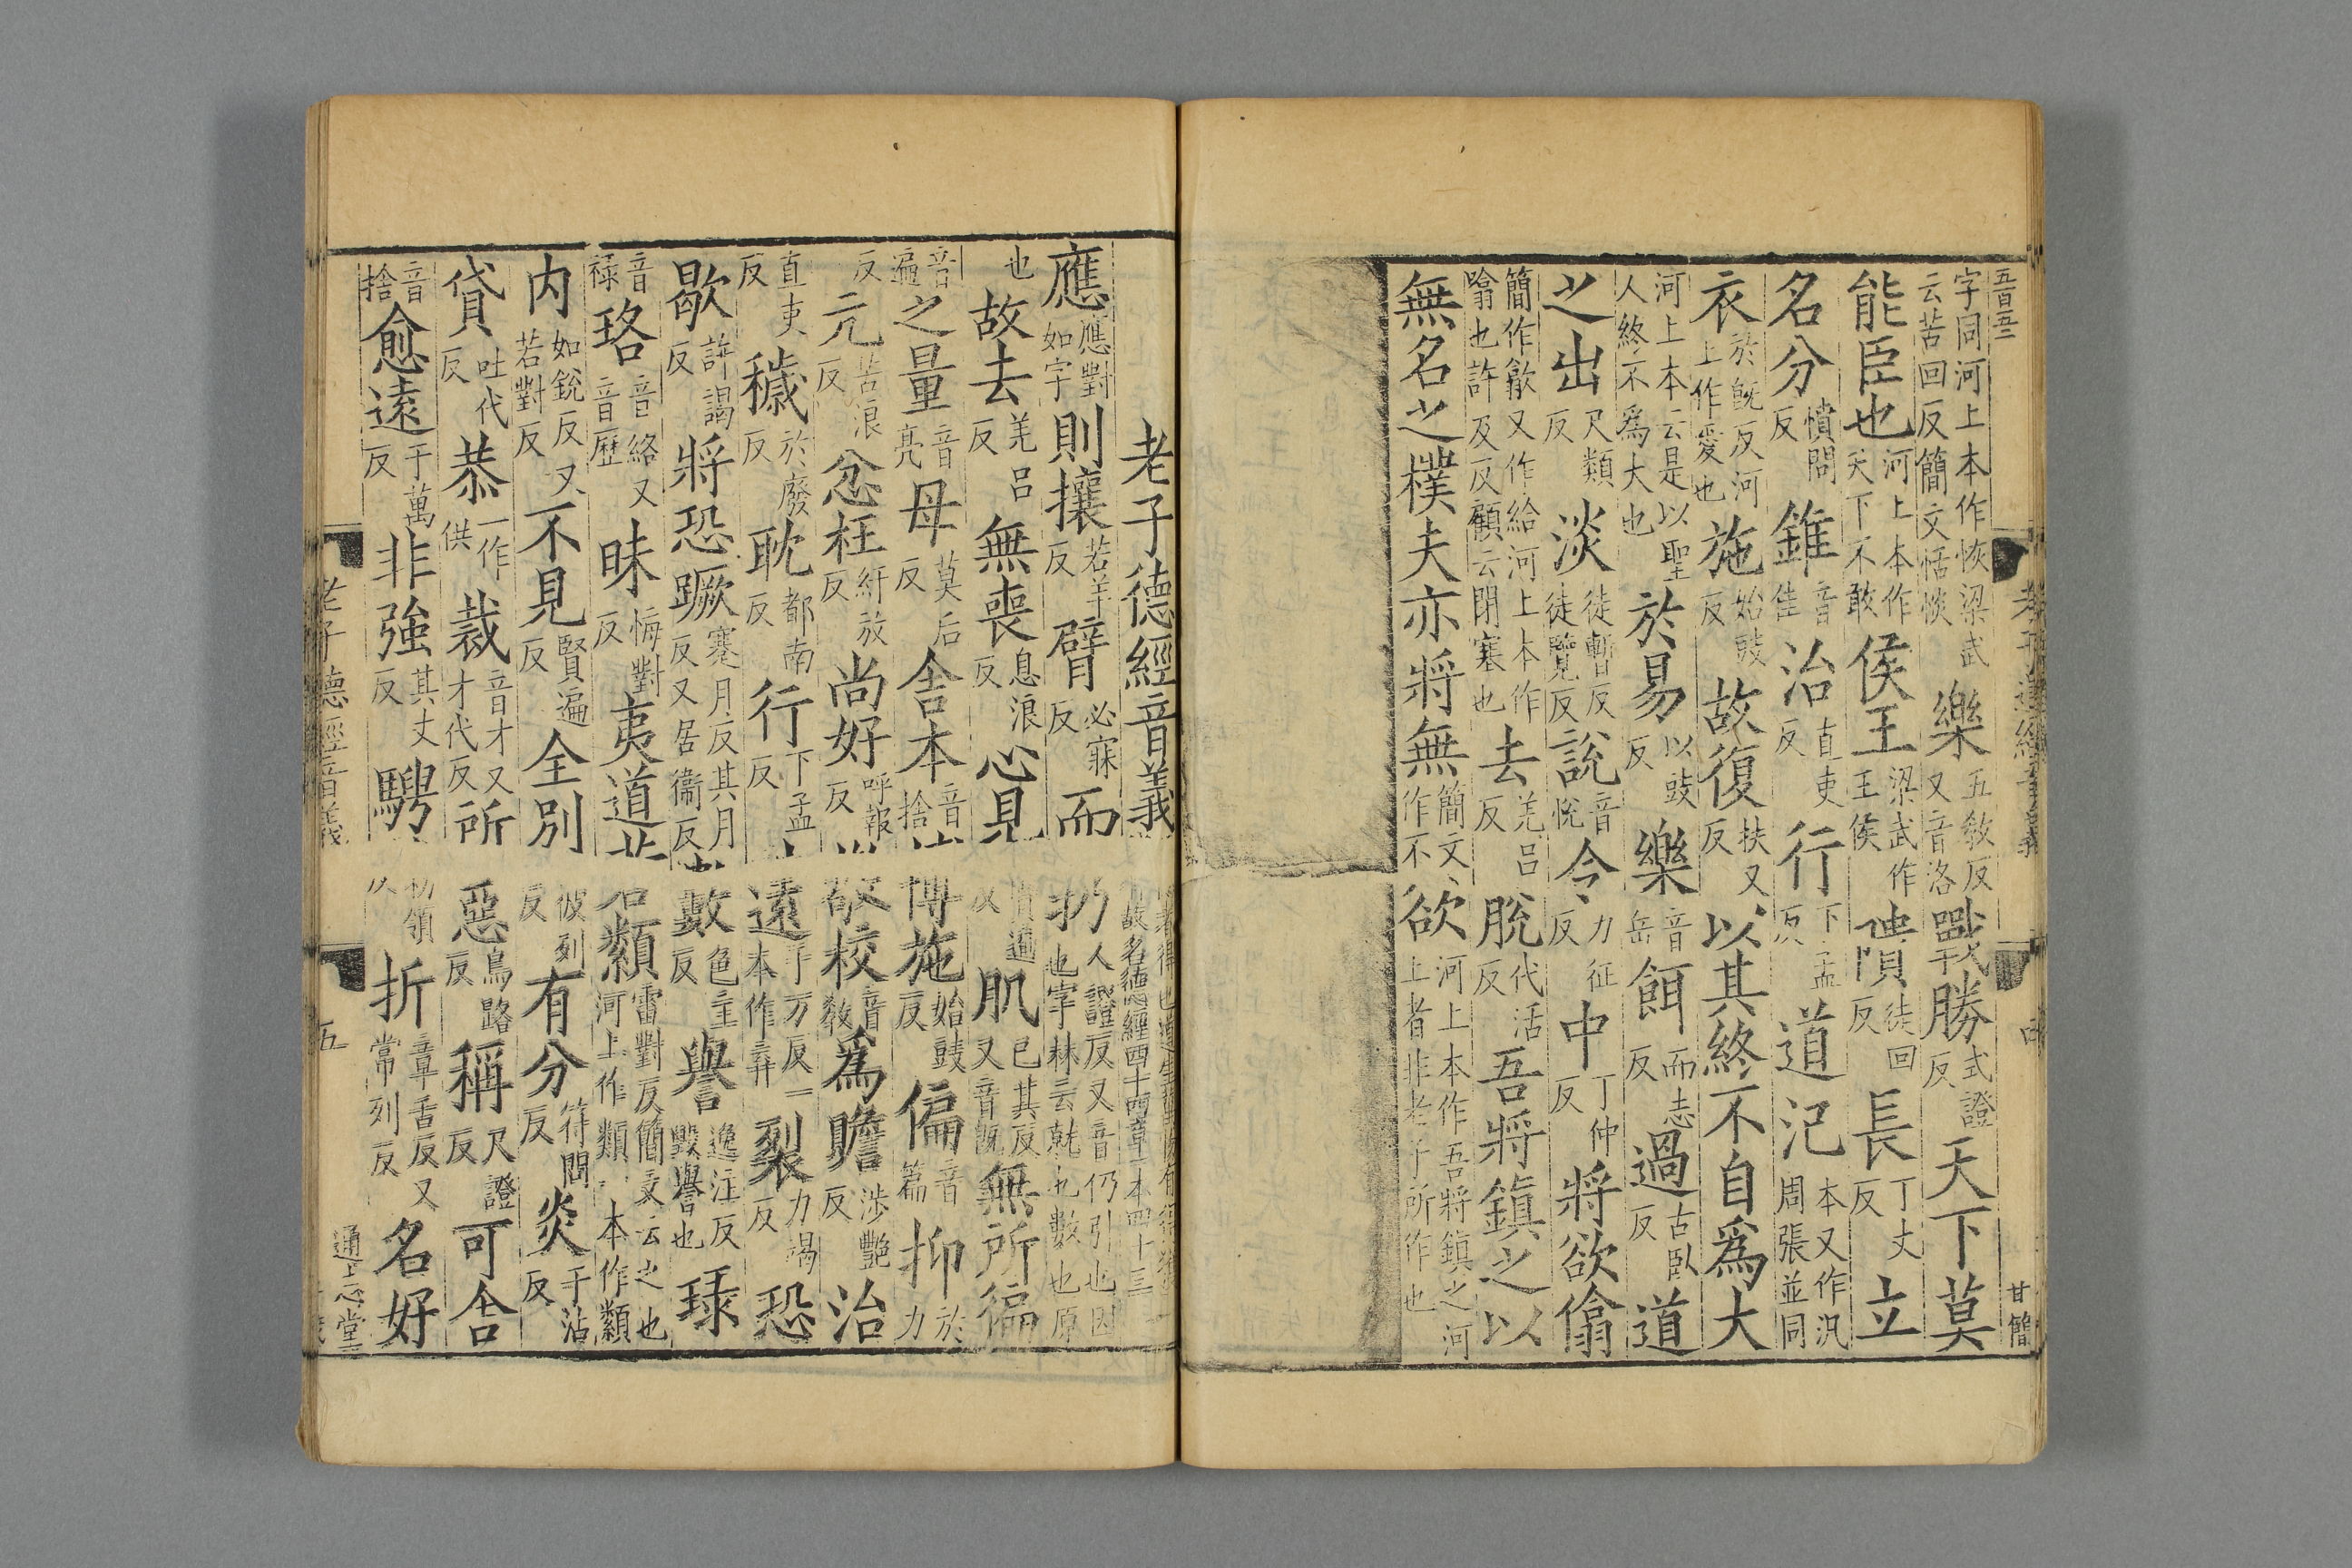 五百五二
字同河上本作恢梁武
云苦回反簡文恬惔樂五敎反
又音洛戰勝式證
反天下莫
能臣也河上本作
天下不敢侯王梁武作
王侯隤徒回
反長丁丈
反立
名分憤問
反錐音
隹治直吏
反行下孟
反道氾本又作汎
周張並同
衣於旣反河
上作愛也施始豉
反故復扶又
反以其終不自爲大
河上本云是以聖
人終不爲大也於易以豉
反樂音
岳餌而志
反過古臥
反道
之出尺類
反淡徒暫反
徒覽反說音
悅令力征
反中丁仲
反將欲僞
簡作歙又作給河上本作
噏也許及反顧云閉塞也去羌呂
反脫代活
反吾將鎭之以
無名之樸夫亦將無簡文
作不欲河上本作吾將鎭之河
上者非老子所作也
甘簡
老子德經音義
老子德經音義
應應對
如字則攘若羊
反臂必寐
反而扔人證反又音仍引也因
也字林云就也數也原
也故去羌呂
反無喪息浪
反心見賢遍
反肌已其反
又音旣無所徧
音
遍之量音
亮母莫后
反舍本音
捨博施始豉
反偏音
篇抑於
力
反亢苦浪
反忿枉紆放
反尚好呼報
反校音
敎爲贍涉豔
反治
直吏
反穢於廢
反耽都南
反行下孟
反遠于万反一
本作弃裂力竭
反恐
歇許謁
反將恐蹶蹇月反其月
反又居衞反數色主
反譽逸注反
毀譽也琭
音
祿珞音絡又
音歷昧悔對
反夷道若纇雷對反簡文云之也
河上作類一本作纇
内如銳反又
若對反不見賢遍
反全別彼列
反有分符問
反炎于沾
反
貸吐代
反恭一作
供裁音才又
才代反所惡烏路
反稱尺證
反可舍
音
捨愈遠于萬
反非強其丈
反騁勑領
反折章舌反又
常列反名好
五
通志堂